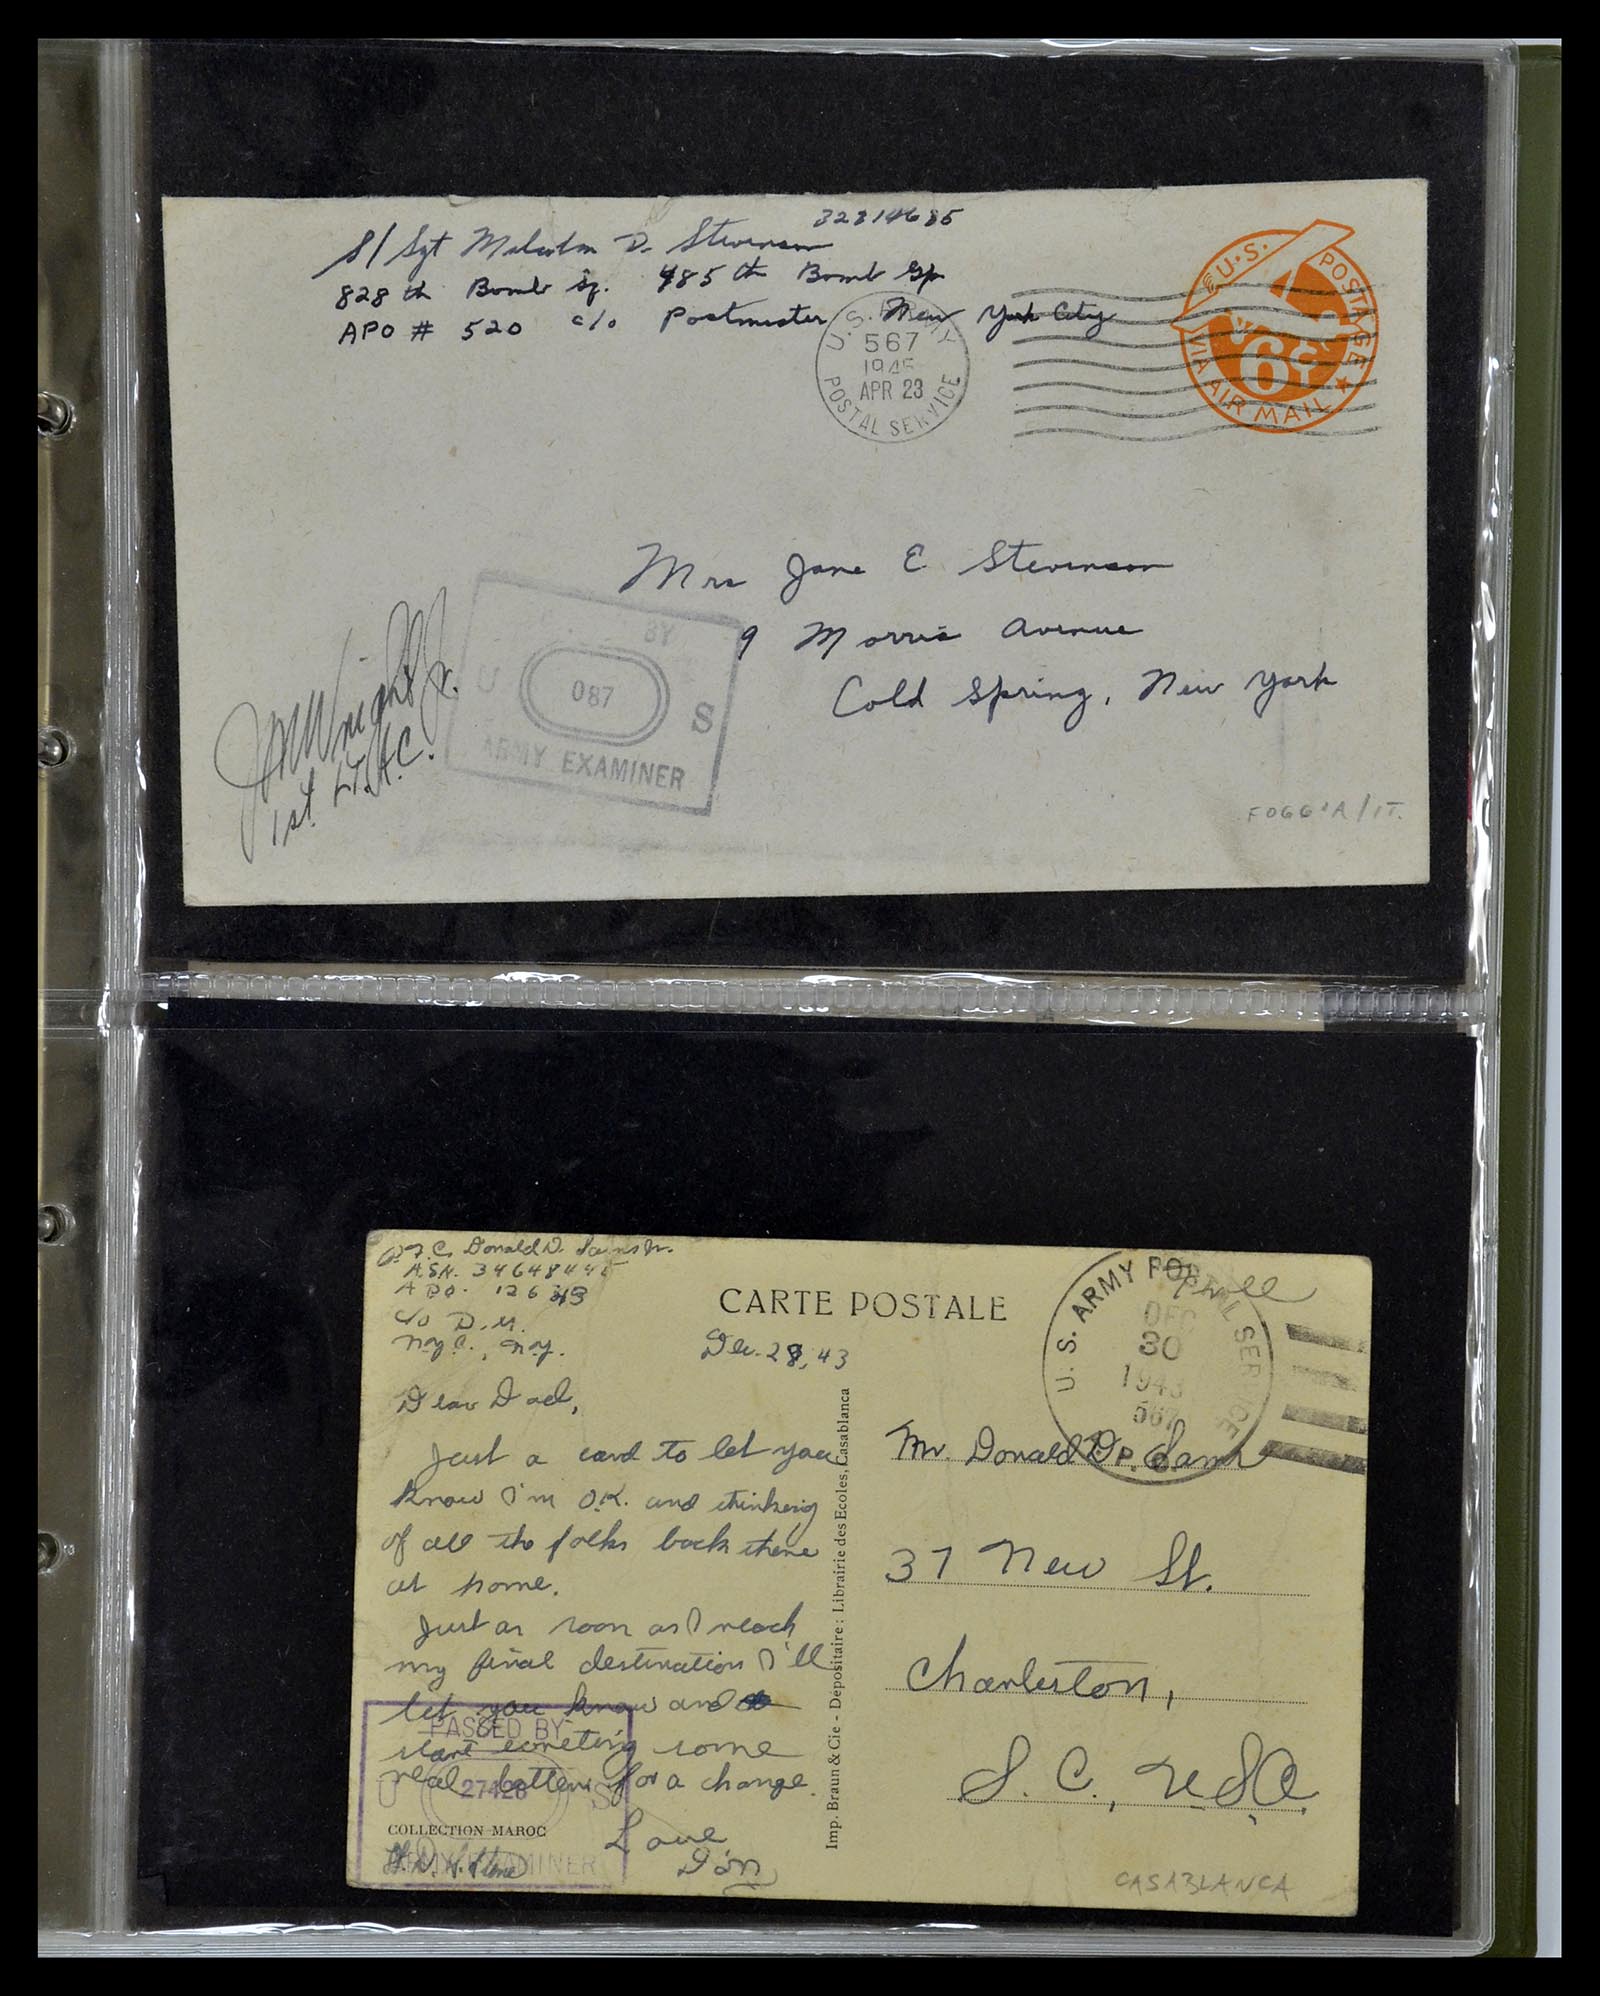 S/Sgt Malcolm D. Stevenson 32814685
828 th Bomb Sq. 485 th Bomb Gp
APO # 520 c/o Postmaster New York City
U.S. ARMY
567
1945
APR 23
POSTAL SERVICE
U.S. POSTAGE
6¢
VIA AIR MAIL
Mrs Jane E Stevenson
9 Morris Avenue
Cold Spring, New York
BY
U 087 S
ARMY EXAMINER
Wright Jr.
1st. LT. A.C.
FOGGIA/IT.
P.F.C. Donald D.
A.S.N. 34648445
A.P.O. 12643
c/o P.M.
N.Y.C., N.Y.
CARTE POSTALE
Dec. 28, 43
U.S. ARMY POSTAL SERVICE
DEC
30
1943
567
A.P.O.
Free
Dear Dad,
Just a card to let you
know I'm O.K. and thinking
of all the folks back there
at home.
Just as soon as I reach
my final destination I'll
let you know and
start writing some
real letters for a change.
Love
Don
PASSED BY
U 27428 S
ARMY EXAMINER
COLLECTION MAROC
Imp. Braun & Cie - Dépositaire : Librairie des Ecoles, Casablanca
Mr. Donald D.
37 New St.
Charleston,
S. C., U.S.A.
CASABLANCA